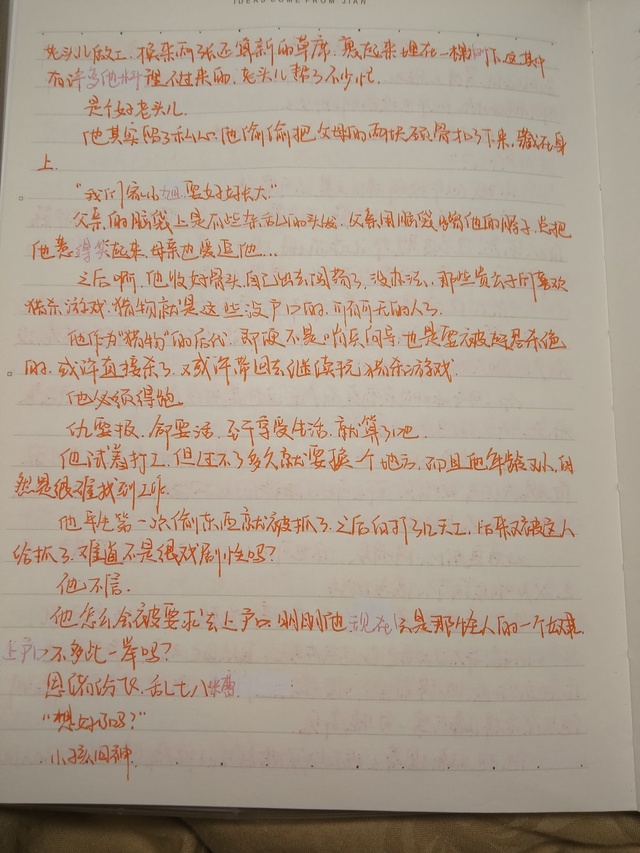 IDEAS COME FROM JIAN
老头儿做工，换来两张还算新的草席，裹起来埋在一棵树下，这其中
有许多他料理不过来的，老头儿帮了不少忙.
是个好老头儿.
他其实留了私心，他偷偷把父母的两块碎骨扣了下来，藏在身
上.
“我们家小姐，要好好长大.”
父亲的脑袋上是有些杂乱的头发，父亲用脑袋蹭他的脖子，总把
他惹得笑起来，母亲也爱逗他...
之后啊，他收好骨头，自己出去闯荡了，没办法，那些贵公子们喜欢
猎杀游戏，猎物就是这些没户口的，可有可无的人了.
他作为“猎物”的后代，即便不是哨兵向导，也是要被赶尽杀绝
的，或许直接杀了，又或许带回去继续玩猎杀游戏.
他必须得跑.
仇要报，命要活，至于享受生活，就算了吧.
他试着打工，但过不了多久就要换一个地方，而且他年龄又小，自
然是很难找到工作.
他毕生第一次偷东西就被抓了，之后白打了几天工，后来又被这人
给抓了，难道不是很戏剧性吗？
他不信.
他怎么会被要求去上户口，明明他现在只是那怪人的一个奴隶，
上户口不多此一举吗？
思绪纷飞，乱七八糟
“想好了吗？”
小孩回神.